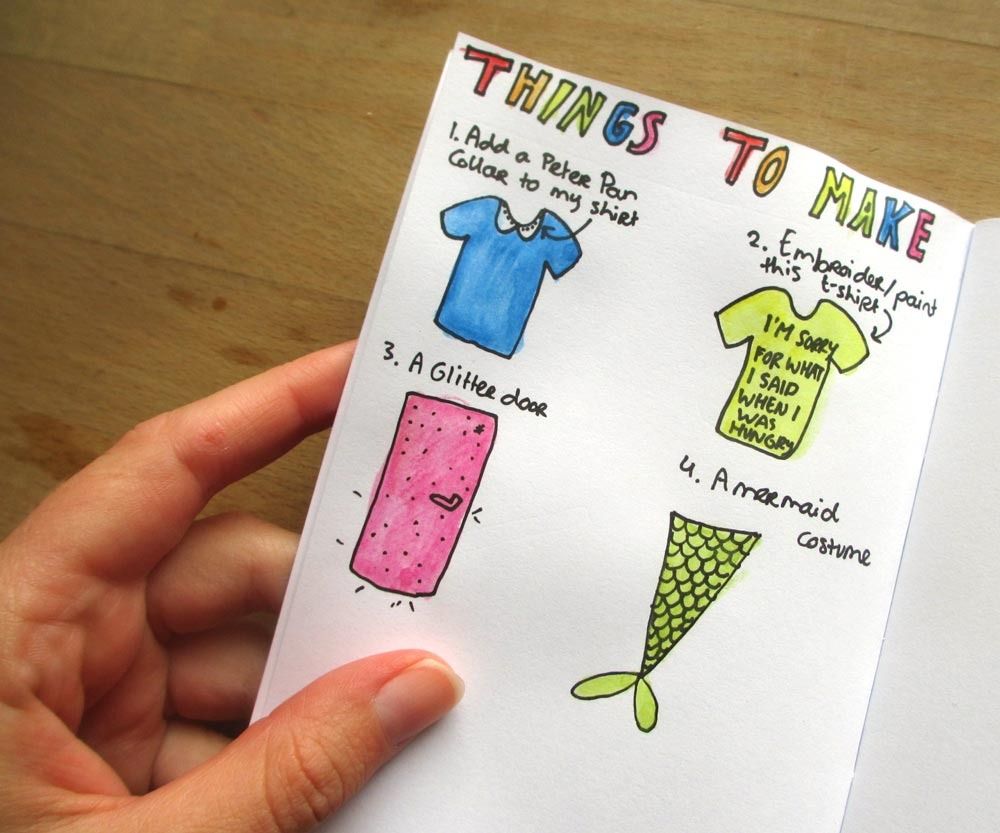 THINGS TO MAKE
1. Add a Peter Pan
Collar to my shirt
2. Embroider/paint
this t-shirt
I'M SORRY
FOR WHAT
I SAID
WHEN I
WAS
HUNGRY
3. A Glitter door
4. A mermaid
costume